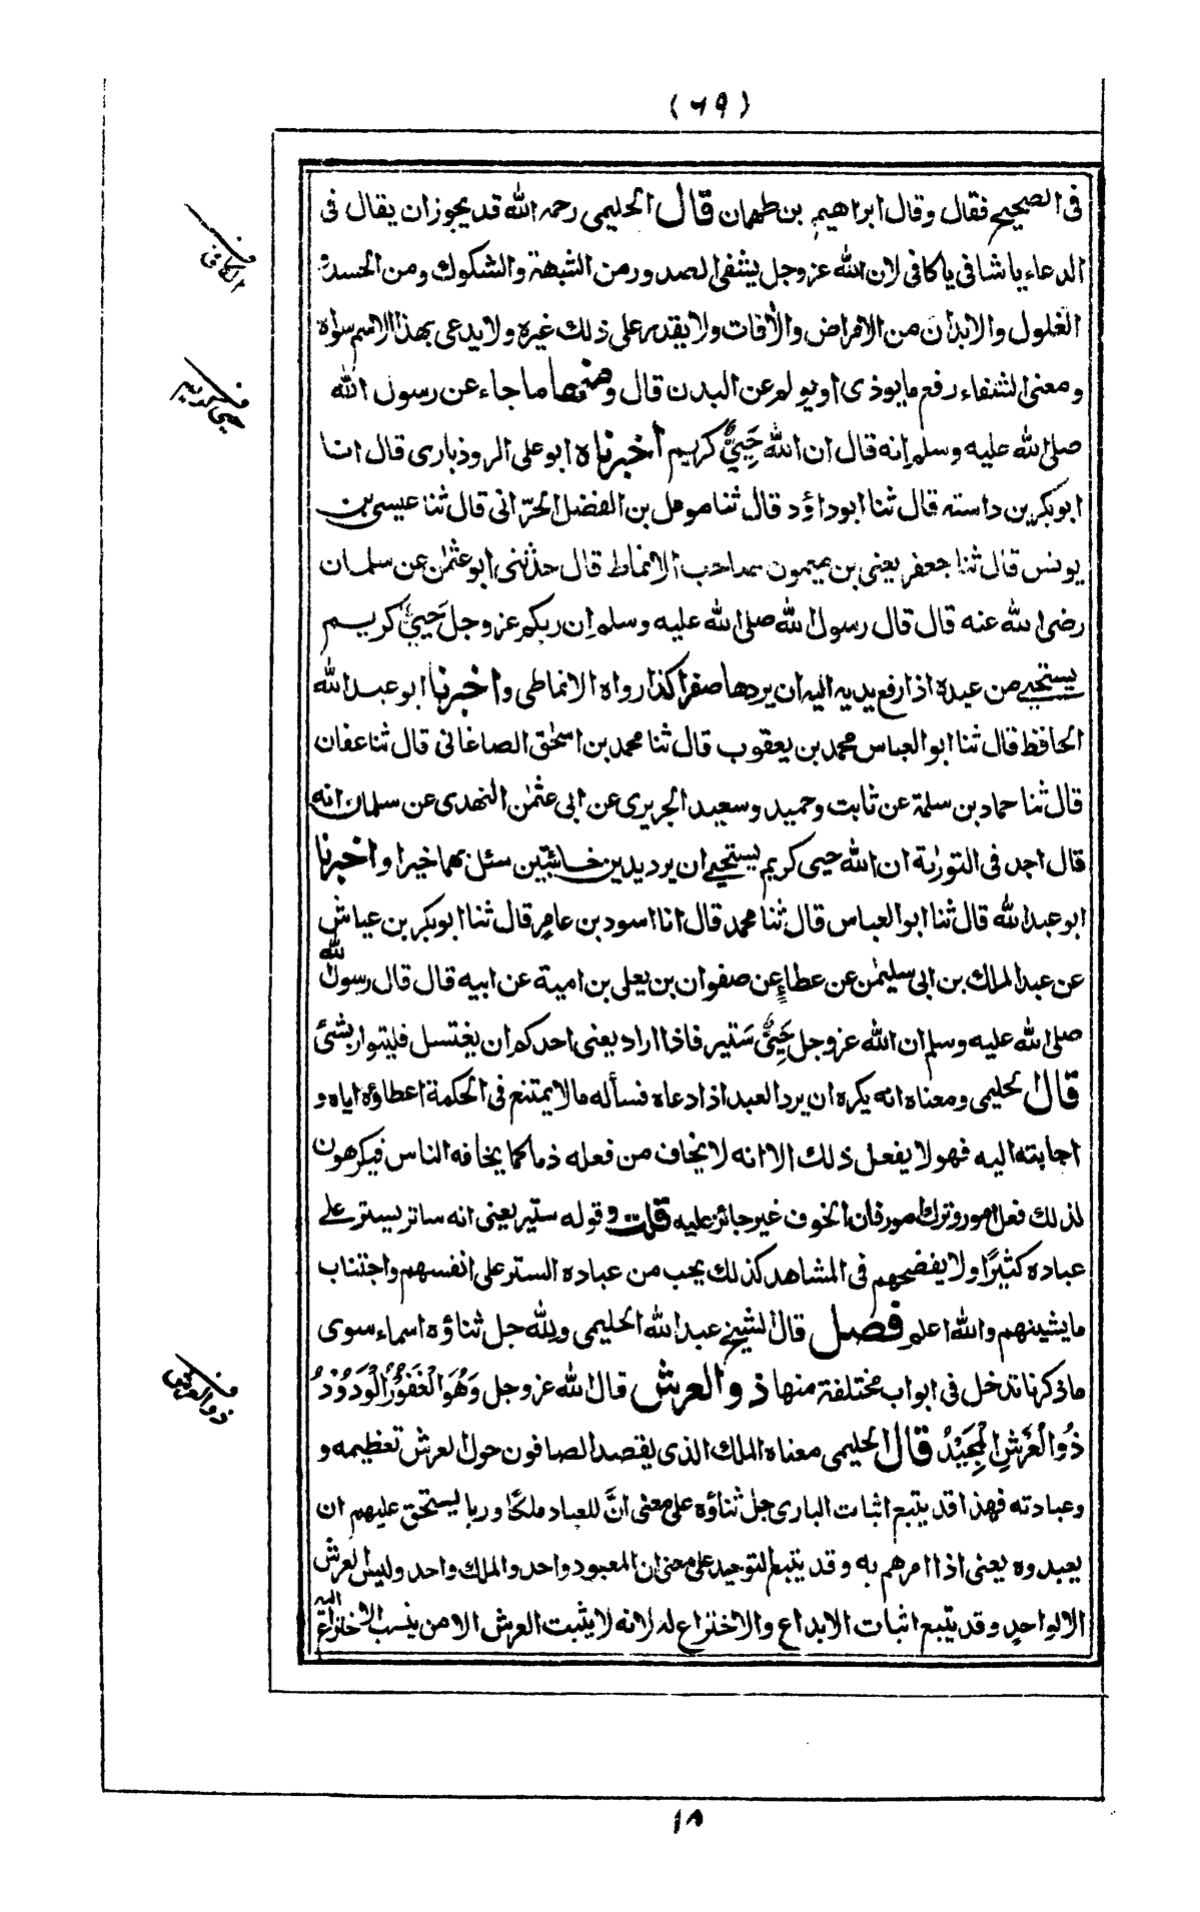 (٦٩)
فى الصحيح فقال وقال ابراهيم بن طهمان قال الحليمى رحمه الله قد يجوز ان يقال فى
الدعاء يا شافى يا كافى لان الله عز وجل يشفى الصدور من الشبهة والشكوك ومن الحسد و
الغلول والابدان من الامراض والآفات ولا يقدر على ذلك غيره ولا يدعى بهذا الاسم سواه
ومعنى الشفاء رفع ما يوذى او يولم عن البدن قال ومنها ما جاء عن رسول الله
صلى الله عليه وسلم انه قال ان الله حَيِىٌّ كريم أخبرناه ابو على الروذبارى قال انا
ابو بكر بن داسته قال ثنا ابو داؤد قال ثنا مومل بن الفضل الحرّانى قال ثنا عيسى بن
يونس قال ثنا جعفر يعنى بن ميمون صاحب الانماط قال حدثنى ابو عثمٰن عن سلمان
رضى الله عنه قال قال رسول الله صلى الله عليه وسلم ان ربكم عز وجل حَيِىٌّ كريم
يستحيى من عبده اذا رفع يديه اليه ان يردها صفرا كذا رواه الانماطى واخبرنا ابو عبد الله
الحافظ قال ثنا ابو العباس محمد بن يعقوب قال ثنا محمد بن اسحٰق الصاغانى قال ثنا عفان
قال ثنا حماد بن سلمة عن ثابت وحميد وسعيد الجريرى عن ابى عثمٰن النهدى عن سلمان انه
قال اجد فى التورٰىة ان الله حيى كريم يستحيى ان يرد يدين خائبتين سئل بهما خيرا واخبرنا
ابو عبد الله قال ثنا ابو العباس قال ثنا محمد قال انا اسود بن عامر قال ثنا ابو بكر بن عياش
عن عبد الملك بن ابى سليمٰن عن عطاء عن صفوان بن يعلى بن امية عن ابيه قال قال رسول الله
صلى الله عليه وسلم ان الله عز وجل حَيِىٌّ سَتير فاذا اراد يعنى احدكم ان يغتسل فليتوار بشئ
قال الحليمى ومعناه انه يكره ان يرد العبد اذا دعاه فسأله ما لا يمتنع فى الحكمة اعطاؤه اياه و
اجابته اليه فهو لا يفعل ذلك الا انه لا يخاف من فعله ذما كما يخافه الناس فيكرهون
لذلك فعل امور وترك امور فان الخوف غير جائز عليه قلت وقوله ستير يعنى انه ساتر يستر على
عباده كثيرًا ولا يفضحهم فى المشاهد كذلك يحب من عباده الستر على انفسهم واجتناب
ما يشينهم والله اعلم فصل قال الشيخ عبد الله الحليمى ولله جل ثناؤه اسماء سوى
ما ذكرنا تدخل فى ابواب مختلفة منها ذو العرش قال الله عز وجل وَهُوَ الْغَفُوْرُ الْوَدُوْدُ
ذُو الْعَرْشِ الْمَجِيْدُ قال الحليمى معناه الملك الذى يقصد الصافون حول العرش تعظيمه و
وعبادته فهذا قد يتبع اثبات البارى جل ثناؤه على معنى انّ للعباد ملكًا وربا يستحق عليهم ان
يعبدوه يعنى اذا امرهم به وقد يتبع التوحيد على معنى ان المعبود واحد والملك واحد وليس العرش
الا لواحد وقد يتبع اثبات الابداع والاختراع له لانه لا يثبت العرش الا من ينسب الاختراع اليه
ف الكافى
ف حيى كريم
ف ذو العرش
١٨